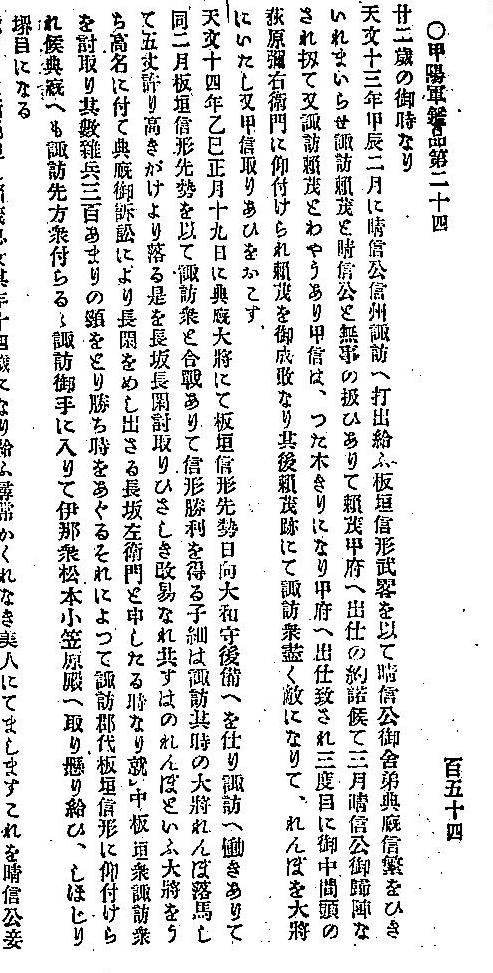 〇甲陽軍鑑品第二十四
百五十四
廿二歲の御時なり
天文十三年甲辰二月に晴信公信州諏訪へ打出給ふ板垣信形武畧を以て晴信公御舍弟典廐信繁をひき
いれまいらせ諏訪賴茂と晴信公と無事の扱ひありて賴茂甲府へ出仕の約諾候て三月晴信公御歸陣な
され扨て又諏訪賴茂とわやうあり甲信は、つた木きりになり甲府へ出仕致され三度目に御中間頭の
荻原彌右衛門に仰付けられ賴茂を御成敗なり其後賴茂跡にて諏訪衆盡く敵になりて、れんぼを大將
にいたし又甲信取りあひをおこす
天文十四年乙巳正月十九日に典廐大將にて板垣信形先勢日向大和守後備へを仕り諏訪へ働きありて
同二月板垣信形先勢を以て諏訪衆と合戰ありて信形勝利を得る子細は諏訪其時の大將れんぼ落馬し
て五丈許り高きがけより落る是を長坂長閑討取りひさしき改易なれ共すはのれんぼといふ大將をう
ち高名に付て典廐御訴訟により長閑をめし出さる長坂左衛門と申したる時なり就中板垣衆諏訪衆
を討取り其數雜兵三百あまりの頸をとり勝ち時をあぐるそれによつて諏訪郡代板垣信形に仰付けら
れ候典廐へも諏訪先方衆付らるゝ諏訪御手に入りて伊那衆松本小笠原殿へ取り懸り給ひ、しほじり
堺目になる
十四歲になり給ふ尋常かくれなき美人にてましますこれを晴信公妾